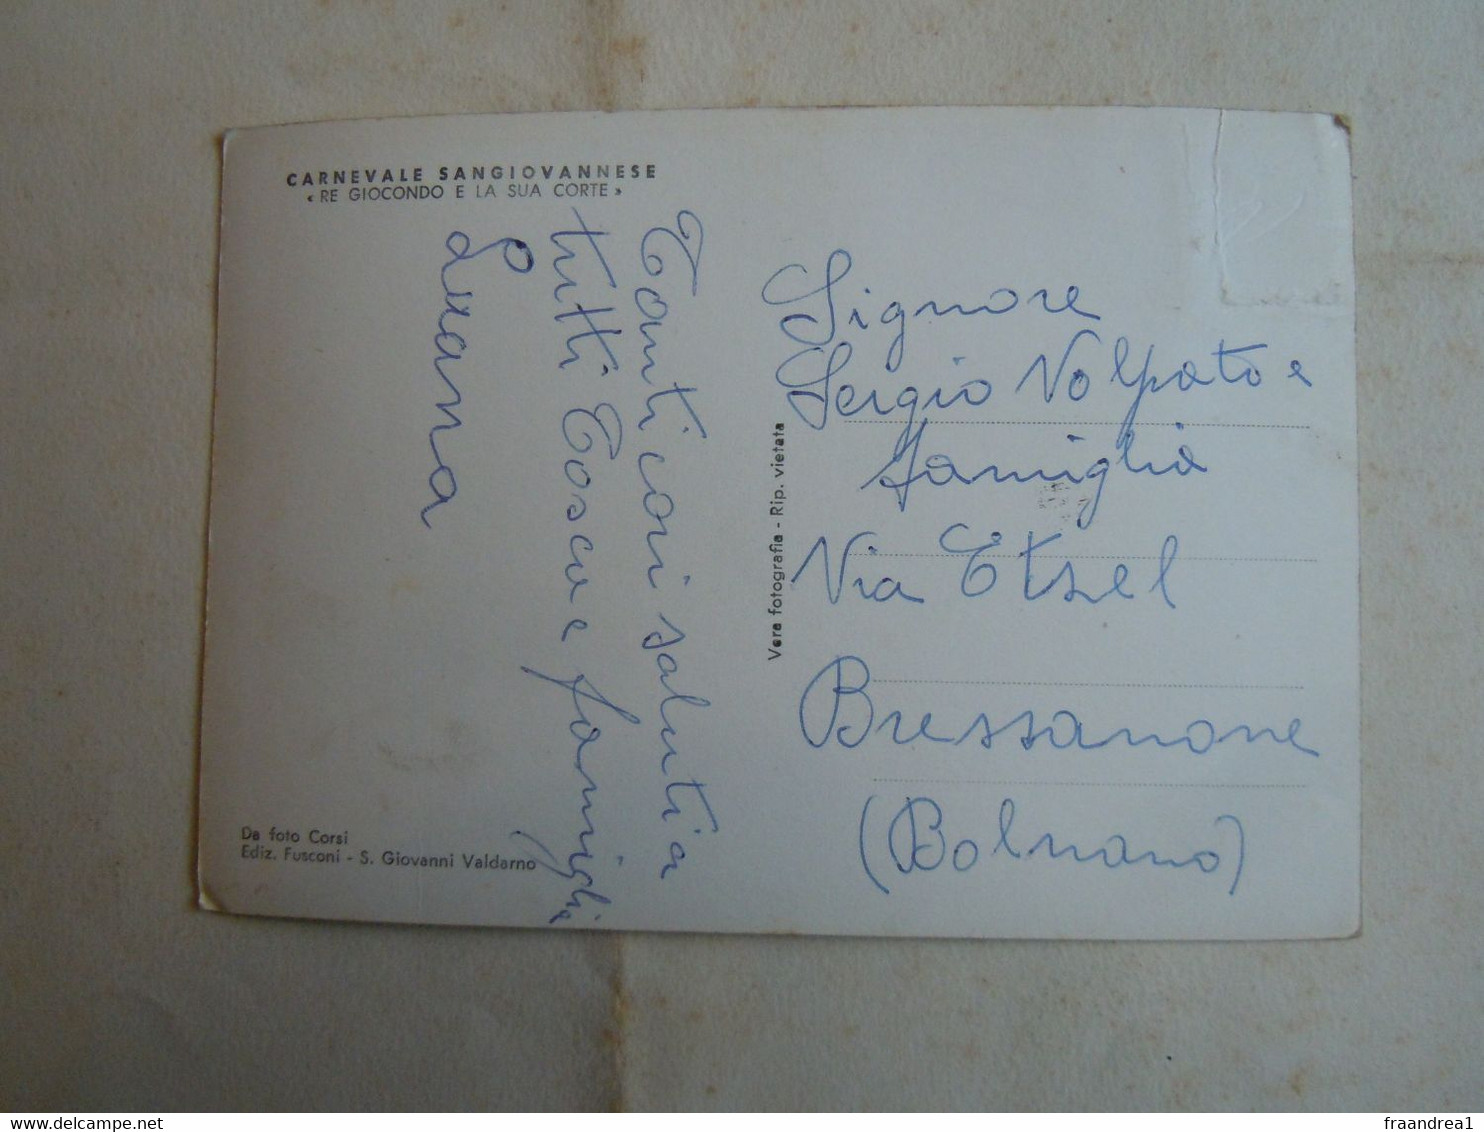 CARNEVALE SANGIOVANNESE
« RE GIOCONDO E LA SUA CORTE »
Tanti cari saluti a
tutti Tosca e famiglia
Luana
Da foto Corsi
Ediz. Fusconi - S. Giovanni Valdarno
Vera fotografia - Rip. vietata
Signore
Sergio Volpato e
famiglia
Via Etzel
Bressanone
(Bolzano)
fraandrea1